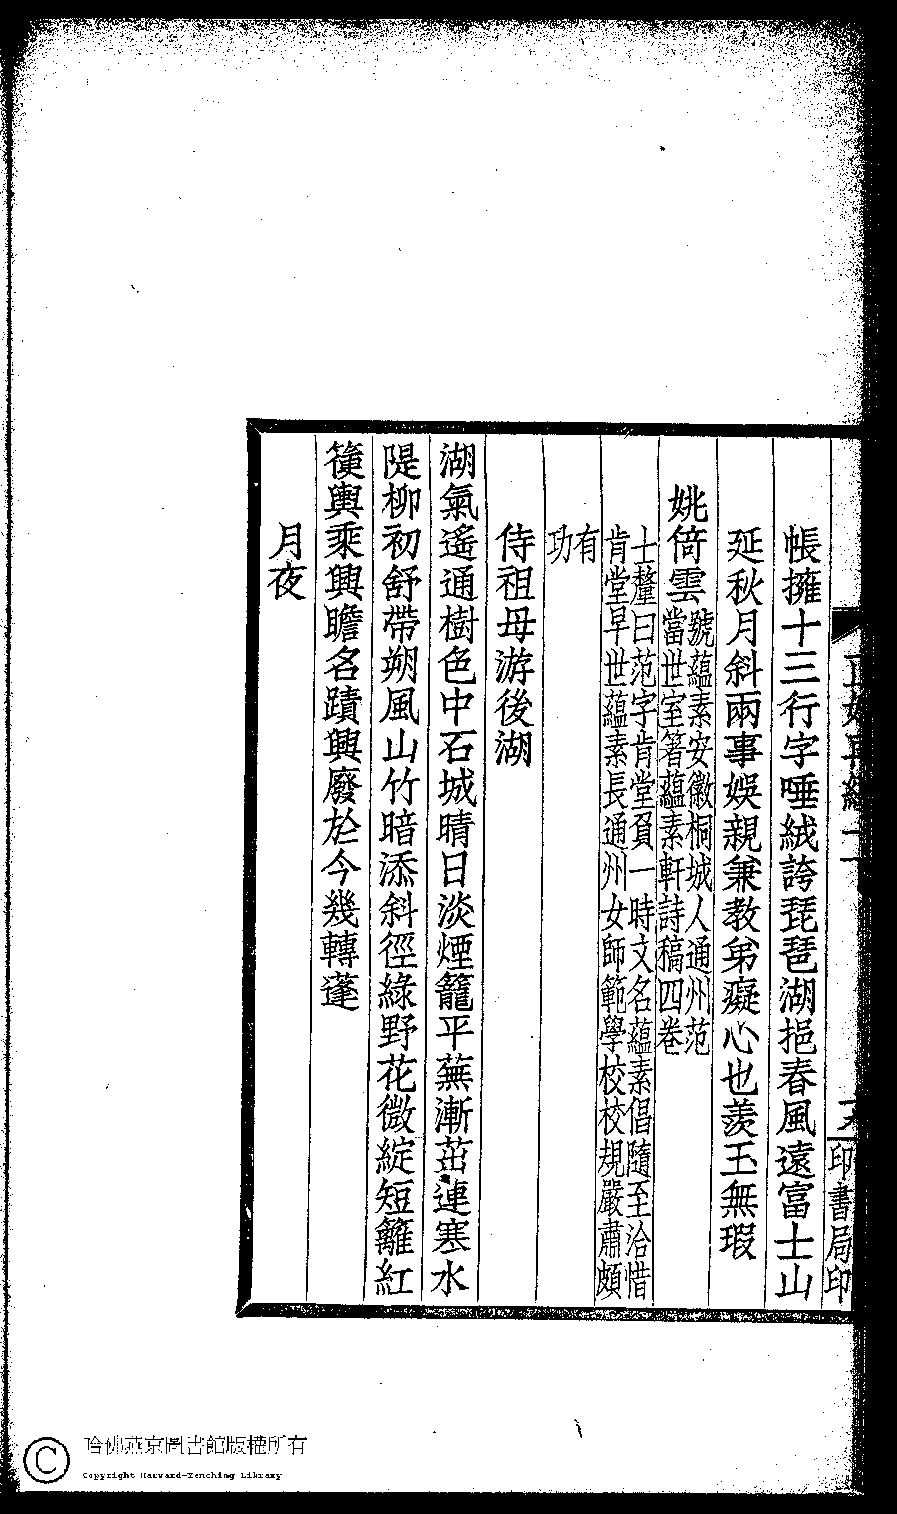 印書局印
帳擁十三行字唾絨誇琵琶湖挹春風遠富士山
延秋月斜兩事娛親兼教弟癡心也羨玉無瑕
姚倚雲
號蘊素安徽桐城人通州范
當世室箸蘊素軒詩稿四卷
士釐曰范字肯堂負一時文名蘊素倡隨至洽惜
肯堂早世蘊素長通州女師範學校校規嚴肅頗
有
功
侍祖母游後湖
湖氣遙通樹色中石城晴日淡煙籠平蕪漸茁連寒水
隄柳初舒帶朔風山竹暗添斜徑綠野花微綻短籬紅
籃輿乘興瞻名蹟興廢於今幾轉蓬
月夜
哈佛燕京圖書館版權所有
Copyright Harvard-Yenching Library